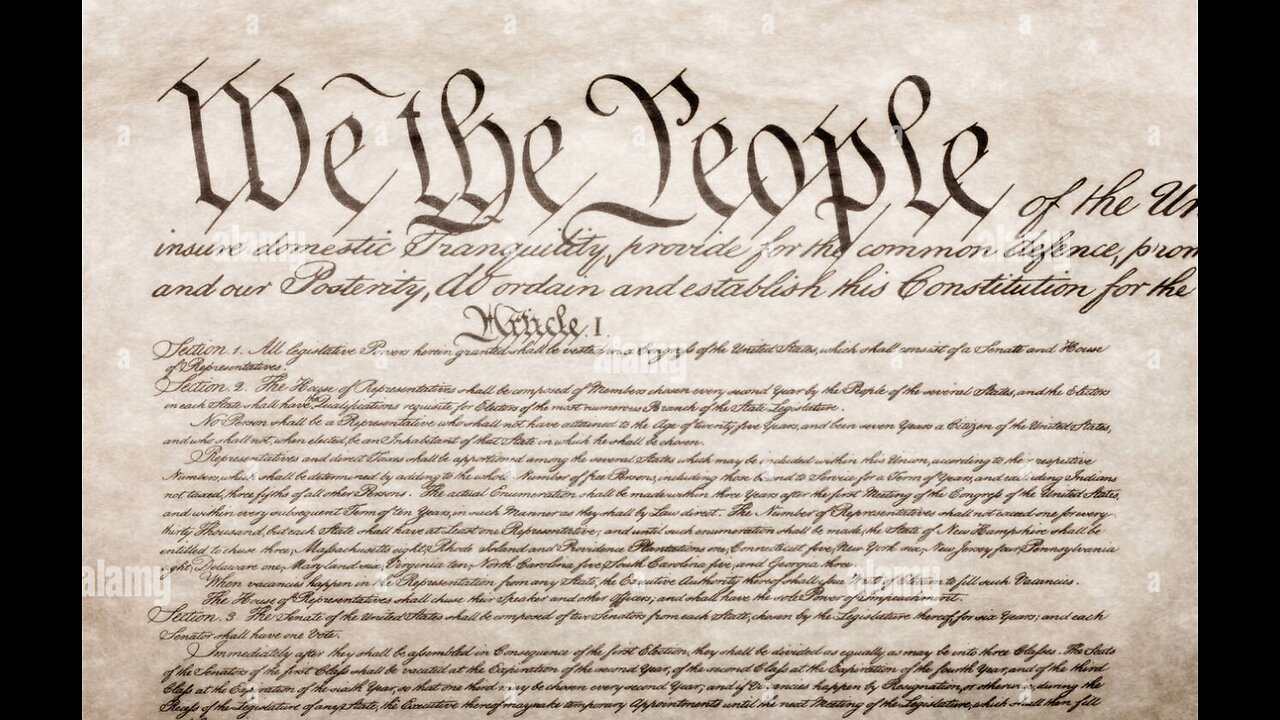 We the People of the Un
insure domestic Tranquility, provide for the common defence, prom
and our Posterity, do ordain and establish this Constitution for the
Article. I.
Section. 1. All legislative Powers herein granted shall be vested in a Congress of the United States, which shall consist of a Senate and House
of Representatives.
Section. 2. The House of Representatives shall be composed of Members chosen every second Year by the People of the several States, and the Electors
in each State shall have the Qualifications requisite for Electors of the most numerous Branch of the State Legislature.
No Person shall be a Representative who shall not have attained to the Age of twenty five Years, and been seven Years a Citizen of the United States,
and who shall not, when elected, be an Inhabitant of that State in which he shall be chosen.
Representatives and direct Taxes shall be apportioned among the several States which may be included within this Union, according to their respective
Numbers, which shall be determined by adding to the whole Number of free Persons, including those bound to Service for a Term of Years, and excluding Indians
not taxed, three fifths of all other Persons. The actual Enumeration shall be made within three Years after the first Meeting of the Congress of the United States,
and within every subsequent Term of ten Years, in such Manner as they shall by Law direct. The Number of Representatives shall not exceed one for every
thirty Thousand, but each State shall have at Least one Representative; and until such enumeration shall be made, the State of New Hampshire shall be
entitled to chuse three, Massachusetts eight, Rhode Island and Providence Plantations one, Connecticut five, New York six, New Jersey four, Pennsylvania
eight, Delaware one, Maryland six, Virginia ten, North Carolina five, South Carolina five, and Georgia three.
When vacancies happen in the Representation from any State, the Executive Authority thereof shall issue Writs of Election to fill such Vacancies.
The House of Representatives shall chuse their Speaker and other Officers; and shall have the sole Power of Impeachment.
Section. 3. The Senate of the United States shall be composed of two Senators from each State, chosen by the Legislature thereof, for six Years; and each
Senator shall have one Vote.
Immediately after they shall be assembled in Consequence of the first Election, they shall be divided as equally as may be into three Classes. The Seats
of the Senators of the first Class shall be vacated at the Expiration of the second Year, of the second Class at the Expiration of the fourth Year, and of the third
Class at the Expiration of the sixth Year, so that one third may be chosen every second Year; and if Vacancies happen by Resignation, or otherwise, during the
Recess of the Legislature of any State, the Executive thereof may make temporary Appointments until the next Meeting of the Legislature, which shall then fill
alamy